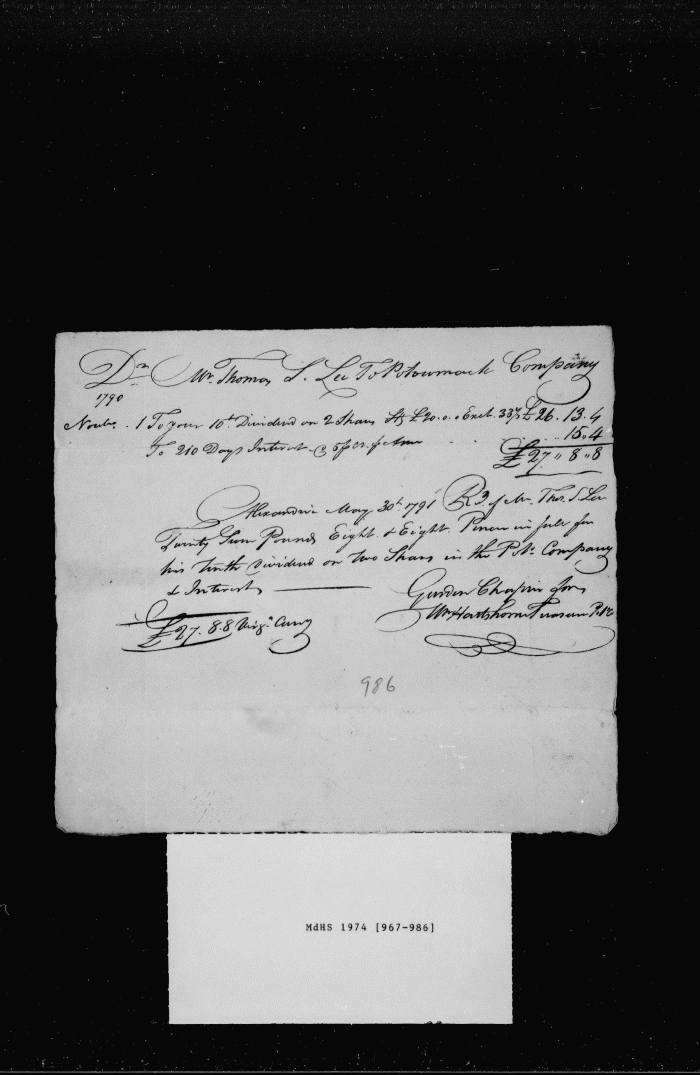 Dr. Mr. Thomas S. Lee To Potowmack Company
1790
Novbr. 1 To your 10th Dividend on 2 Shares Stg £20.0.0 Exch. 33⅓ £26.13.4
To 210 Days Interest @ 5 pr Ct. pr Ann .. 15.4
£27..8..8
Alexandria May 30th 1791 Recd. of Mr. Thos. S. Lee
Twenty Seven Pounds Eight & Eight Pence in full for
his tenth Dividend on two Shares in the Pok. Company
& Interest
Gurden Chapin for
£27.8.8 Virga. Curry
Wm Hartshorne Treasurer P.Co
986
MdHS 1974 [967-986]